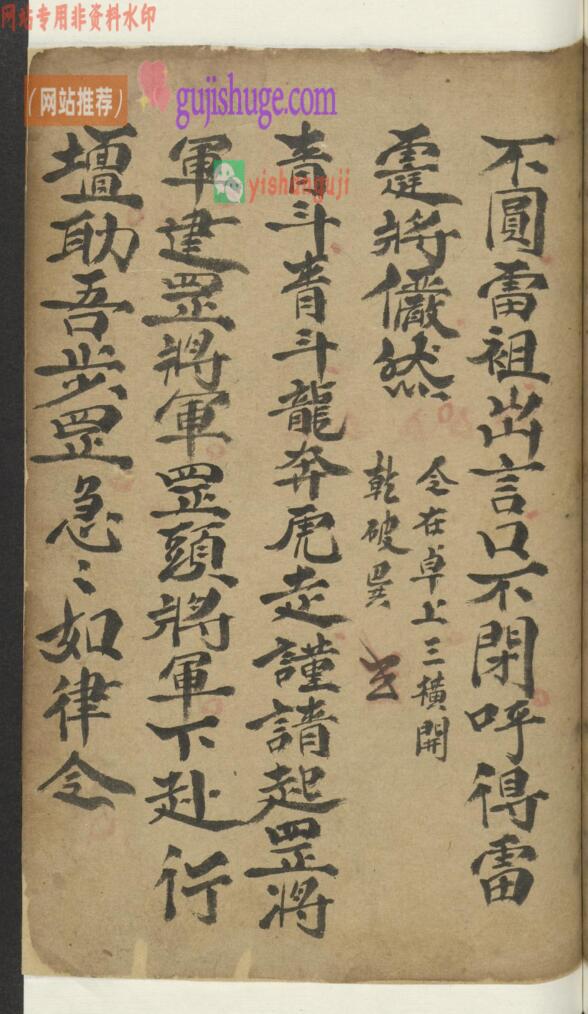 网站专用非资料水印
(网站推荐)
gujishuge.com
yishuguji
不圓雷祖出言口不閉呼得雷
霆將儼然
令在卓上三橫開
乾破巽
青斗青斗龍奔虎走謹請起罡將
軍建罡將軍罡頭將軍下赴行
壇助吾步罡急〻如律令